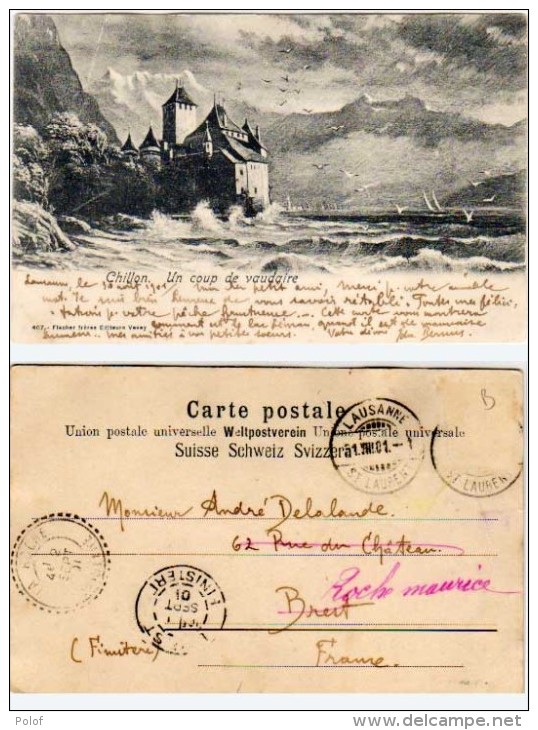 Chillon. Un coup de vaudaire
Lausanne, le 30 août 1901. Mon petit ami, Merci p. votre aimable
mot. Je suis bien heureuse de vous savoir rétabli. Toutes mes félici
tations p. votre pêche fructueuse. — Cette carte vous montrera
407. - Fischer frères Editeurs Vevey
comment est le lac Léman, quand il est de mauvaise
humeur. — mes amitiés à vos petites soeurs. Votre
B
Carte postale
Union postale universelle Weltpostverein Unione postale universale
Suisse Schweiz Svizzera
LAUSANNE
31.VIII.01.-1
ST LAURENT
ST LAURENT
Monsieur André Delalande.
62 Rue du Château.
Roche maurice
Brest
(Finistère)
France.
2
SEPT
01
FINISTERE
SEPT
01
Polof
delcampe.net